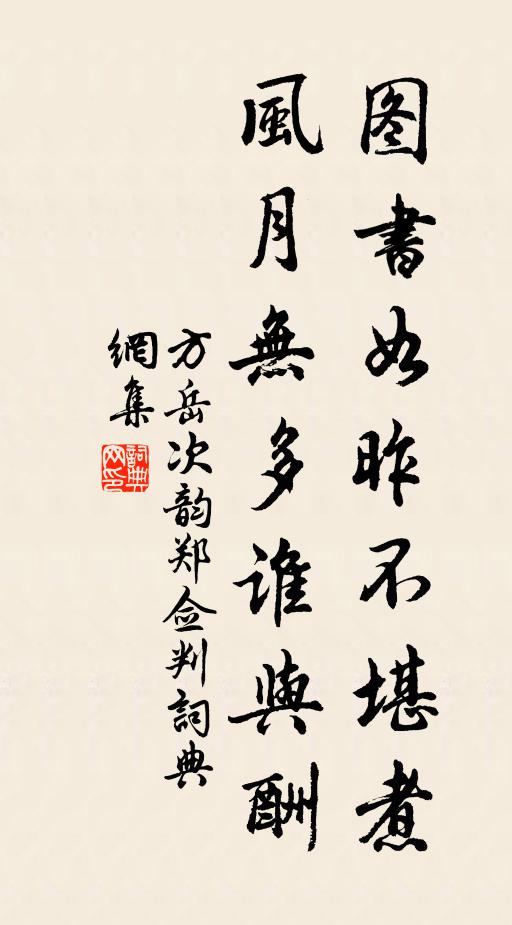 图書如昨不堪煮
風月無多谁與酬
方岳次韵郑佥判詞典
網集
詞典
网印